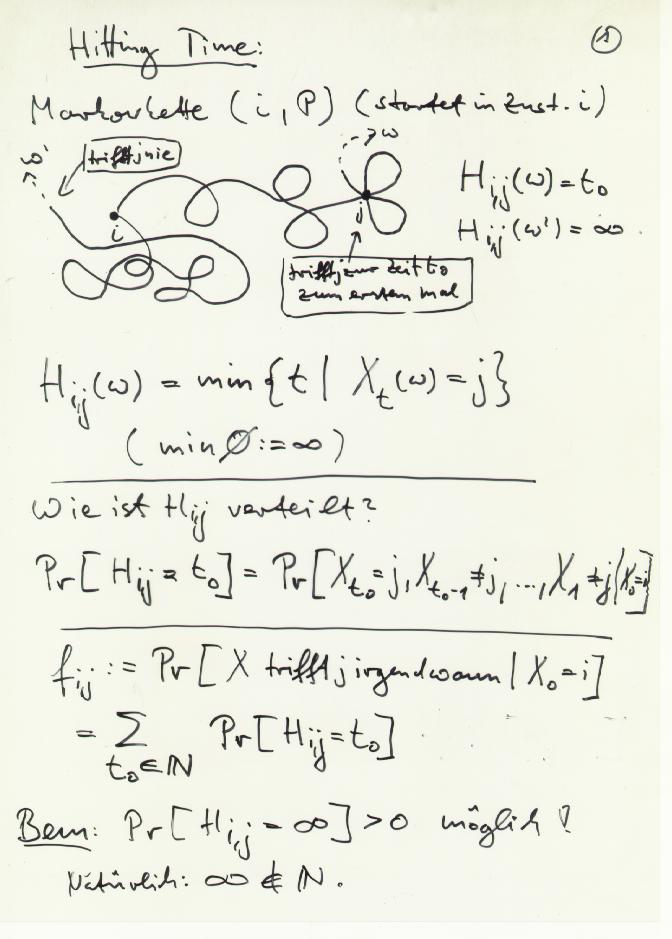 Hitting Time:
①
Markovkette (i, P) (startet in Zust. i)
ω'
trifft j nie
→ ω
i
j
H_{i,j}(ω) = t₀
H_{i,j}(ω') = ∞.
trifft j zur Zeit t₀
zum ersten Mal
H_{i,j}(ω) = min { t | X_t(ω) = j }
( min ∅ := ∞ )
Wie ist H_{ij} verteilt?
Pr[ H_{ij} = t₀ ] = Pr[ X_{t₀} = j, X_{t₀-1} ≠ j, ..., X₁ ≠ j | X₀ = i ]
f_{ij} := Pr[ X trifft j irgendwann | X₀ = i ]
= Σ_{t₀ ∈ ℕ} Pr[ H_{ij} = t₀ ]
Bem: Pr[ H_{i,j} = ∞ ] > 0 möglich!
Natürlich: ∞ ∉ ℕ.